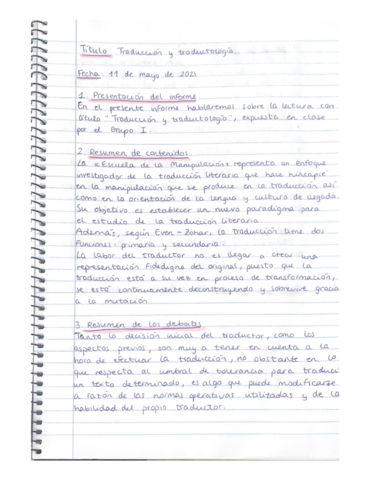 Título: Traducción y traductología.
Fecha: 11 de mayo de 2021
1. Presentación del informe
En el presente informe hablaremos sobre la lectura con
título "Traducción y traductología", expuesta en clase
por el Grupo I.
2. Resumen de contenidos
La «Escuela de la Manipulación» representa un enfoque
investigador de la traducción literaria que hace hincapié
en la manipulación que se produce en la traducción así
como en la orientación de la lengua y cultura de llegada.
Su objetivo es establecer un nuevo paradigma para
el estudio de la traducción literaria.
Además, según Even-Zohar, la traducción tiene dos
funciones: primaria y secundaria.
La labor del traductor no es llegar a crear una
representación fidedigna del original, puesto que la
traducción está a su vez en proceso de transformación,
se está continuamente deconstruyendo y sobrevive gracias
a la mutación.
3. Resumen de los debates
Tanto la decisión inicial del traductor, como los
aspectos previos, son muy a tener en cuenta a la
hora de efectuar la traducción, no obstante en lo
que respecta al umbral de tolerancia para traducir
un texto determinado, es algo que puede modificarse
a razón de las normas operativas utilizadas y de la
habilidad del propio traductor.